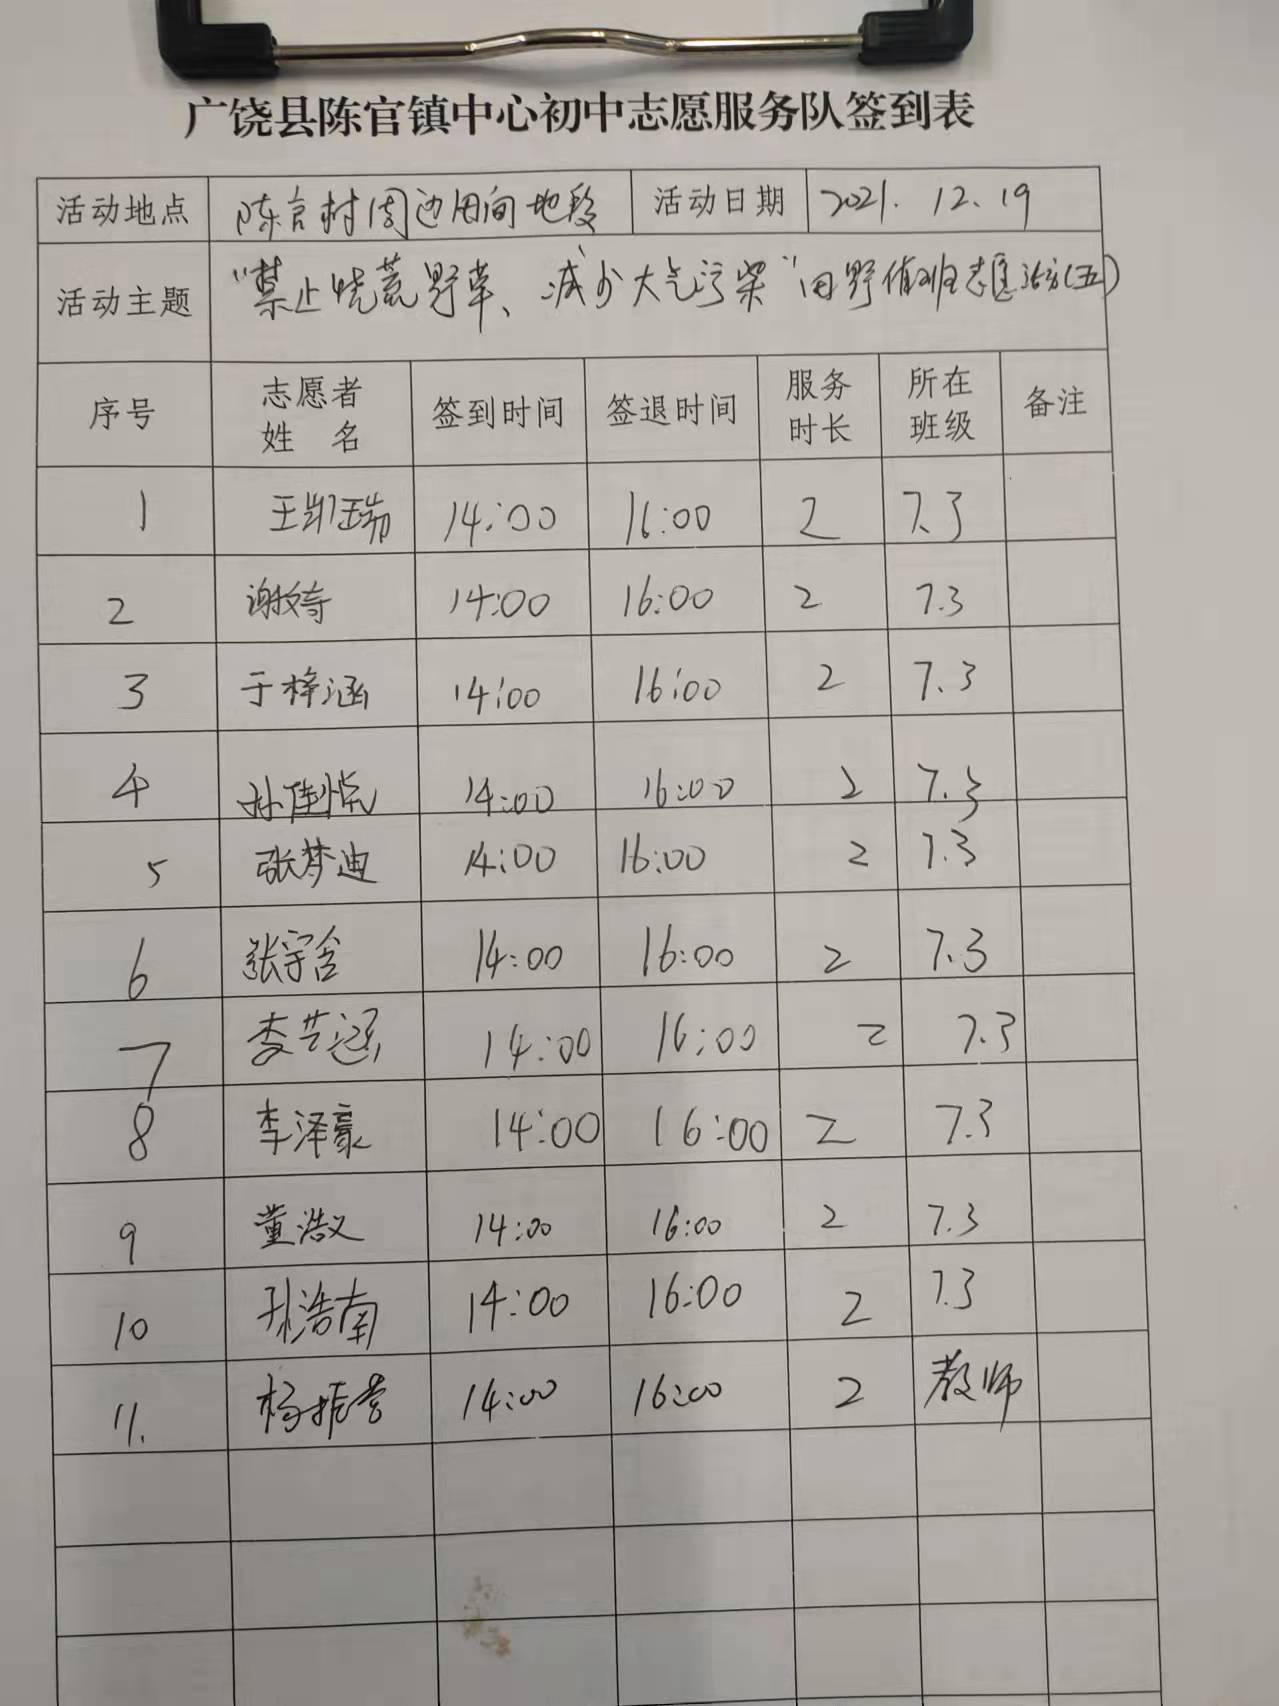 广饶县陈官镇中心初中志愿服务队签到表
活动地点 陈官村周边田间地段 活动日期 2021.12.19
活动主题 “禁止烧荒野草、减少大气污染”田野值班志愿活动(五)
序号 志愿者姓名 签到时间 签退时间 服务时长 所在班级 备注
1 王凯瑞 14:00 16:00 2 7.3
2 14:00 16:00 2 7.3
3 于梓涵 14:00 16:00 2 7.3
4 孙佳悦 14:00 16:00 2 7.3
5 张梦迪 14:00 16:00 2 7.3
6 张宇含 14:00 16:00 2 7.3
7 李艺涵 14:00 16:00 2 7.3
8 李泽豪 14:00 16:00 2 7.3
9 董浩义 14:00 16:00 2 7.3
10 孙浩南 14:00 16:00 2 7.3
11. 14:00 16:00 2 教师